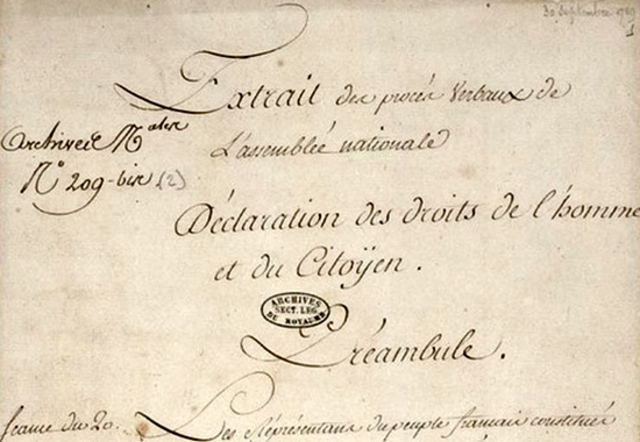 30 Septembre 1789
1
Extrait des procés Verbaux de
L'assemblée nationale
Archives N^ales
N° 209-bis (2)
Déclaration des droits de l'homme
et du Citoÿen.
ARCHIVES
SECT. LEG
DU ROYAUME
Préambule.
Seance du 20.
Les Réprésentans du peuple francais constitués